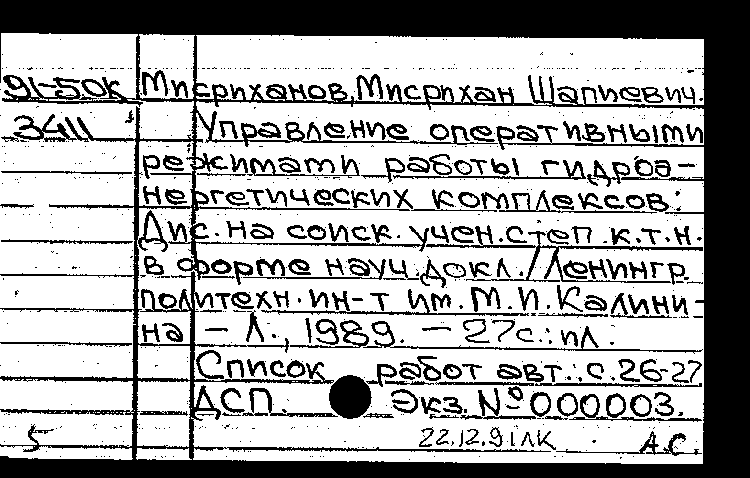 91-50К Мисриханов, Мисрихан Шапиевич.
3411 Управление оперативными
режимами работы гидроэ-
нергетических комплексов:
Дис. на соиск. учен. степ. к.т.н.
в форме науч. докл. / Ленингр.
политехн. ин-т им. М.И. Калини-
на - Л., 1989. - 27с.: ил.
Список работ авт.: с.26-27
ДСП. Экз. № 000003.
5 22.12.91 ЛК А.С.